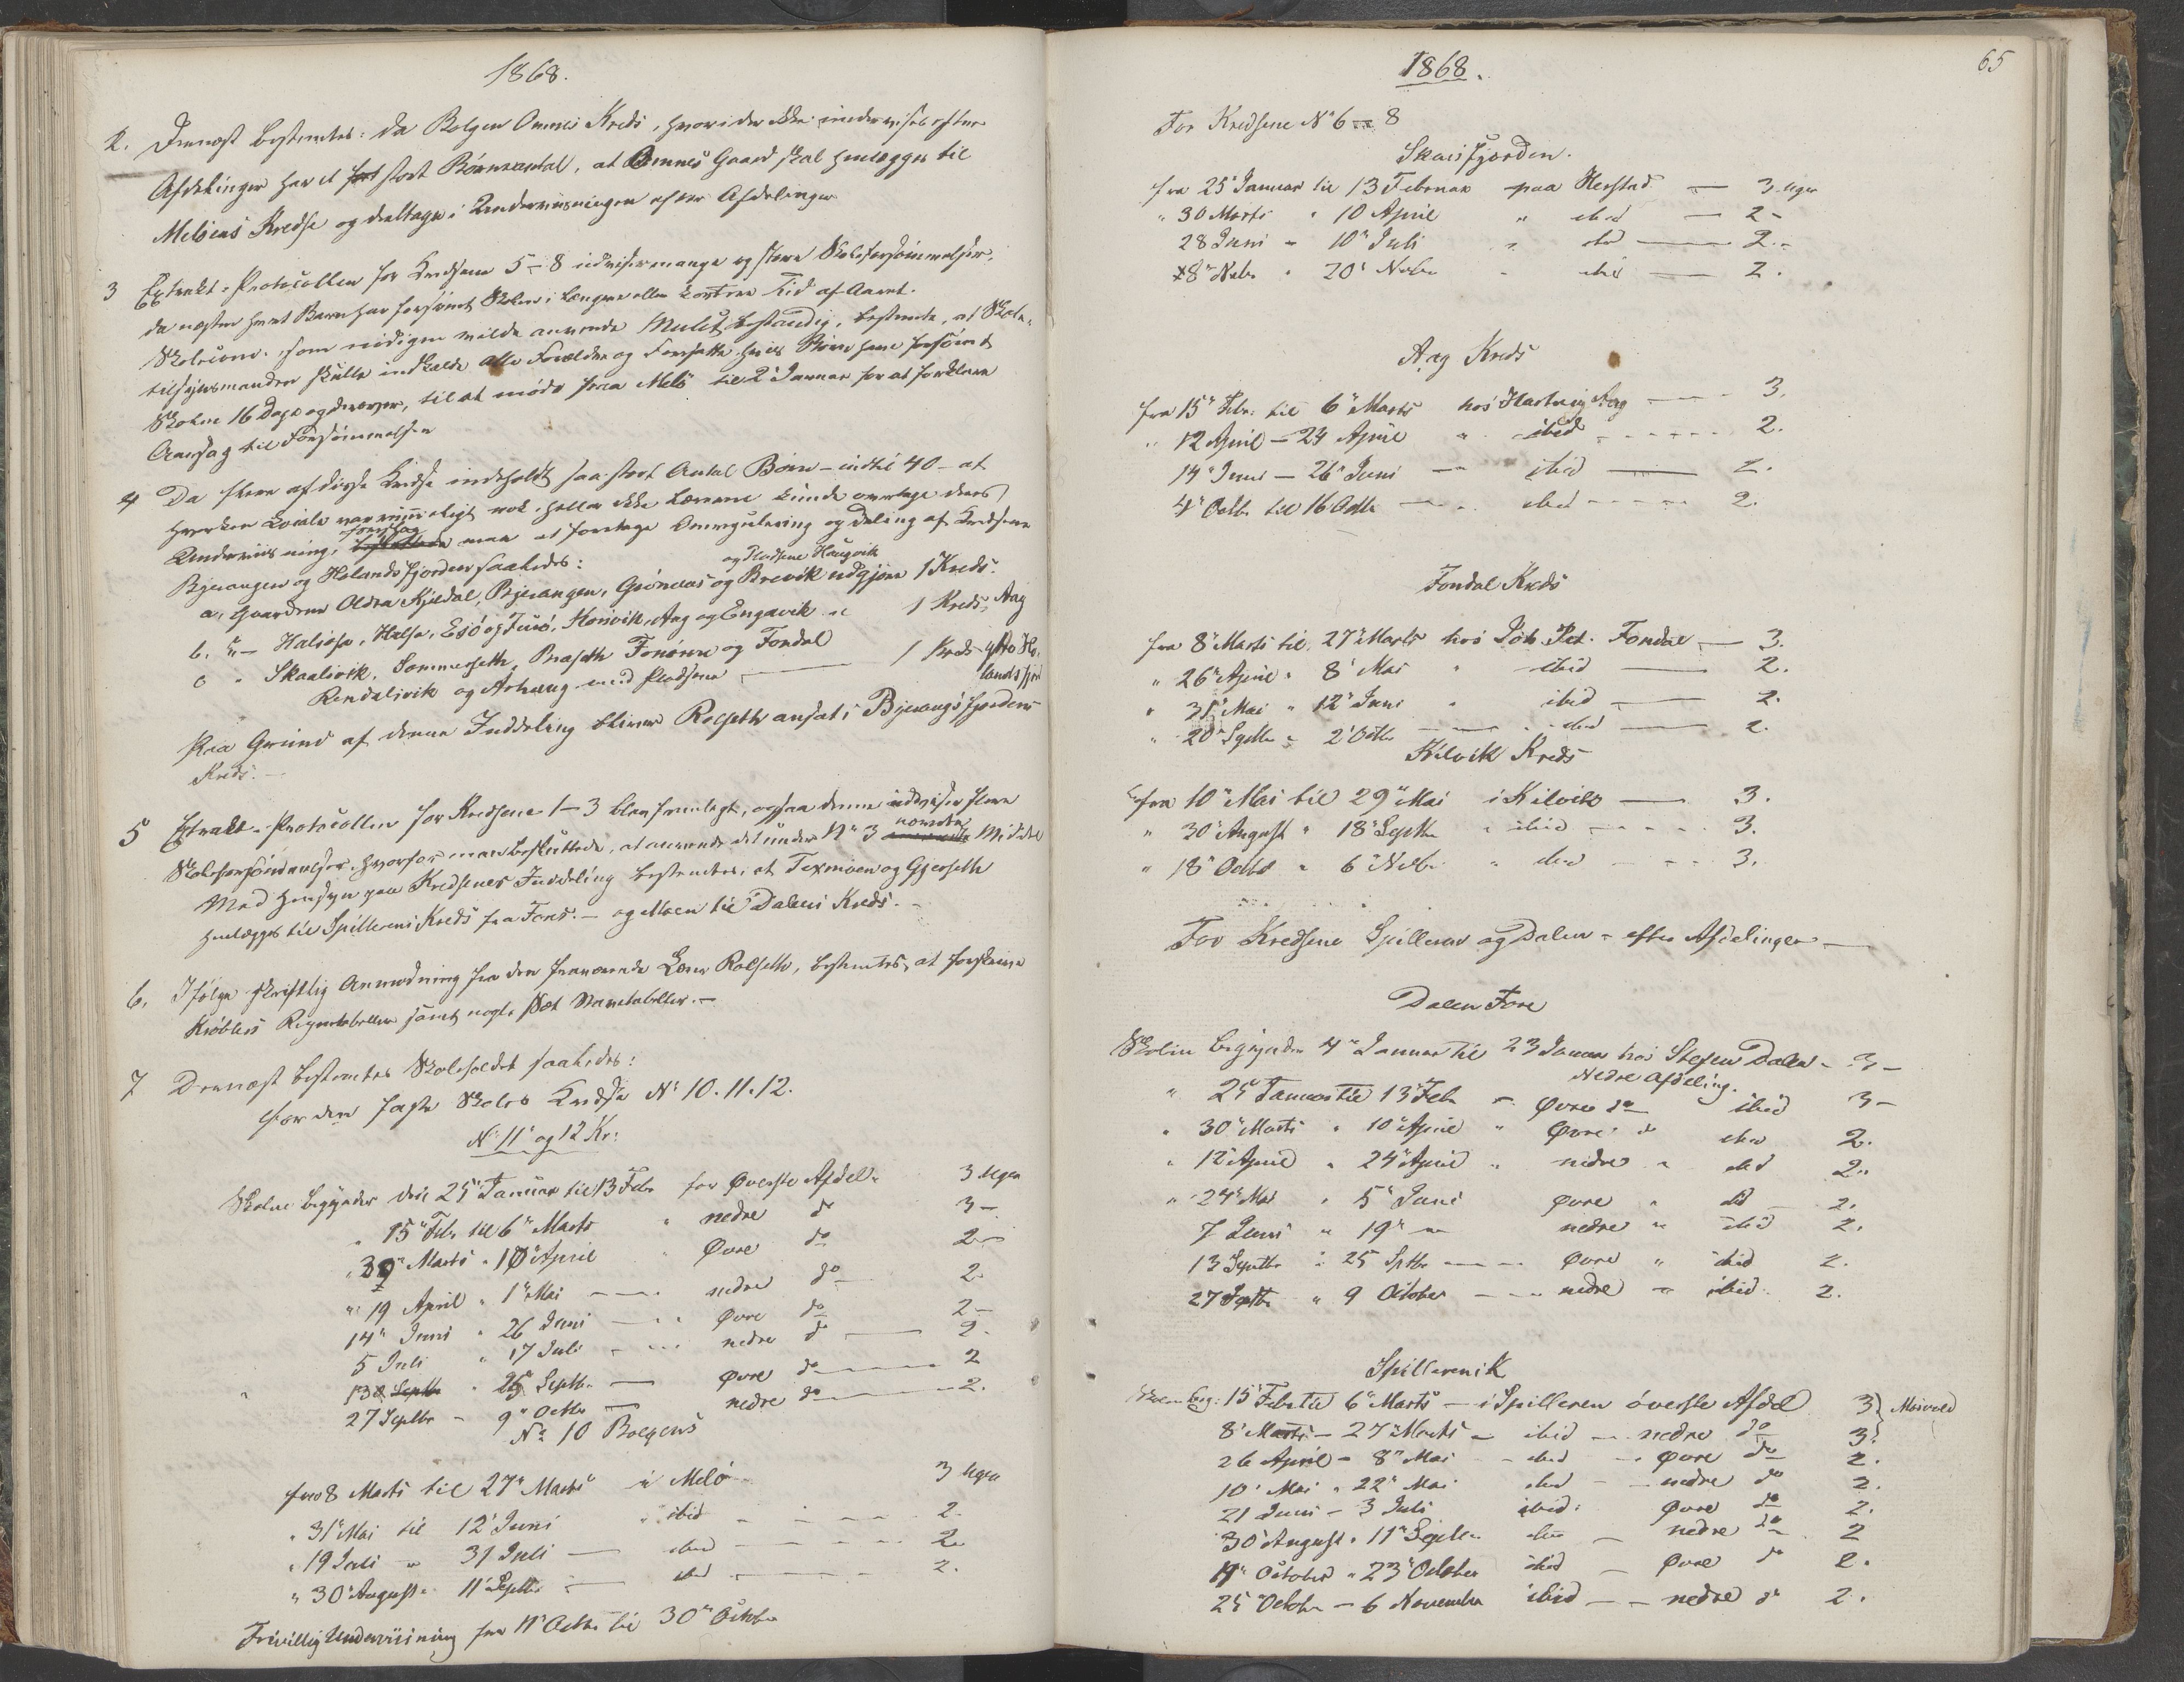 1868.
2. Dernæst bestemtes: da Bolgen Omnes Kreds, hvori der ikke undervises efter
Afdelinger har et stort Børneantal, at Omnes Gaard skal henlægges til
Meløens Kredse og deeltage i Underviisningen efter Afdelinger
3 Extrakt-Protocollen for Kredsene 5-8 udviser mange og store Skoleforsømmelser,
da næsten hvert Barn har forsømt Skolen i længere eller kortere Tid af Aaret.
Skolecom. som nødigen vilde anvende Mulct bestandig, bestemte, at Skole-
tilsynsmanden skulle indkalde alle Forældre og Foresatte hvis Børn have forsømt
Skolen 16 Dage og derover, til at møde paa Melø til 2 Januar for at forklare
Aarsag til Forsømmelsen
4 Da flere af disse Kredse indeholdt saa stort Antal Børn - indtil 40 - at
hverken Locale var rummeligt nok, heller ikke Læreren kunde overtage deres
Underviisning, foreslog man at foretage Omregulering og Deling af Kredsene
Bjerangen og Holandsfjorden saaledes:
og Pladsene Haugvik
a, Gaardene Oldra Kjeldal, Bjerangen, Grønaas og Brevik udgjøre 1 Kreds.
b. "- Halsosa, Halsa, Esø og Forø, Kon­vik, Aag og Engavik " 1 Kreds, Aag
c " Skaalsvik, Sommerseth, Braseth Fonøren og Fondal
Rendalsvik og Aahaug med Pladsene 1 Kreds yttre Ho-
landsfjord
Paa Grund af denne Inddeling bliver Rolseth ansat i Bjerangsfjordens
Kreds.-
5 Extrakt-Protocollen for Kredsene 1-3 blev fremlagt, ogsaa denne udviser store
Skoleforsømmelser, hvorfor man besluttede, at anvende det under N° 3 nævnte Middel
Med Hensyn paa Kredsenes Inddeling bestemtes, at Texmoen og Gjerseth
henlægges til Spillerens Kreds fra Fores. - og Moen til Dalens Kreds.-
6. Ifølge skriftlig Anmodning fra den fraværende Lærer Rolseth, bestemtes, at forskrive
Knøblers Regnetabeller samt nogle Sæt Vanetabeller.-
7 Dernæst bestemtes Skoleholdet saaledes:
For den faste Skoles Kredse N° 10. 11. 12.
N° 11 og 12 Kr:
Skolen begynder den 25" Januar til 13 Febr for Øverste Afdel- 3 Uger
" 15" Febr. til 6" Marts " nedre do 3-
" 30" Marts " 10 April " Øvre do 2-
" 19 April " 1" Mai nedre do 2.
14" Juni " 26 Juni Øvre do 2-
5 Juli " 17 Juli nedre do 2.
" 13 Septbr " 25 Septbr. Øvre do 2
27 Septbr - 9" Octbr nedre do 2.
N° 10 Bolgens
fra 8 Marts til 27" Marts i Melø 3 Uger
" 31" Mai til 12' Juni " ibid 2.
" 19 Juli " 31 Juli ibid 2.
" 30" August " 11" Septbr ibid 2.
Frivillig Underviisning fra 11' Octbr. til 30" Octbr
65
1868.
For Kredsene N° 6-8
Skarsfjorden.
fra 25' Januar til 13 Februar paa Herstad - 3 Uger
" 30 Marts " 10 April " ibid - 2-
28 Juni - 10" Juli " ibid 2.-
8" Novbr. " 20' Novbr " ibid 2.
Aag Kreds
fra 15" Febr. til 6" Marts hos Hartvig Aag 3.
" 12 April - 24 April " ibid 2.
14" Juni - 26" Juni - ibid 2.
4" Octbr til 16 Octbr ibid 2.
Fondal Kreds
fra 8" Marts til 27" Marts hos Joh. Pet. Fondal - 3.
" 26" April " 8' Mai " ibid 2.
" 31 Mai " 12" Juni " ibid 2.
" 20" Septbr " 2' Octbr - ibid 2.
Kilvik Kreds
fra 10" Mai til 29" Mai i Kilvik 3.
" 30" August " 18" Septbr " ibid 3.
" 18" Octbr " 6" Novbr. " ibid 3.
For Kredsene Spilleren og Dalen - efter Afdelinger -
Dalen Fore
Skolen begynder 4" Januar til 23 Januar hos Steffen Dalen - 3-
Nedre Afdeling.
" 25 Januar til 13" Febr - Øvre do ibid 3-
" 30" Marts " 10" April " Øvre do ibid 2.
" 12" April " 24" April " nedre " ibid 2.
" 24" Mai " 5" Juni Øvre " ibid - 2.
7 Juni " 19" - nedre " ibid 2.
13 Septbr " 25 Sptbr Øvre " ibid 2.
27 Septbr " 9 October nedre - ibid. 2.
Spilleren K
Skolen beg: 15" Febr til 6" Marts - i Spilleren øverste Afdel 3
8' Marts - 27" Marts - ibid - nedre do 3.
26 April - 8" Mai - ibid - Øvre do 2.
10' Mai " 22" Mai ibid - nedre do 2.
21 Juni - 3 Juli ibid: Øvre do 2.
30" August " 11" Septbr ibid - nedre do 2
11" October " 23" October ibid - Øvre do 2.
25" Octobr - 6 November ibid - nedre do 2.